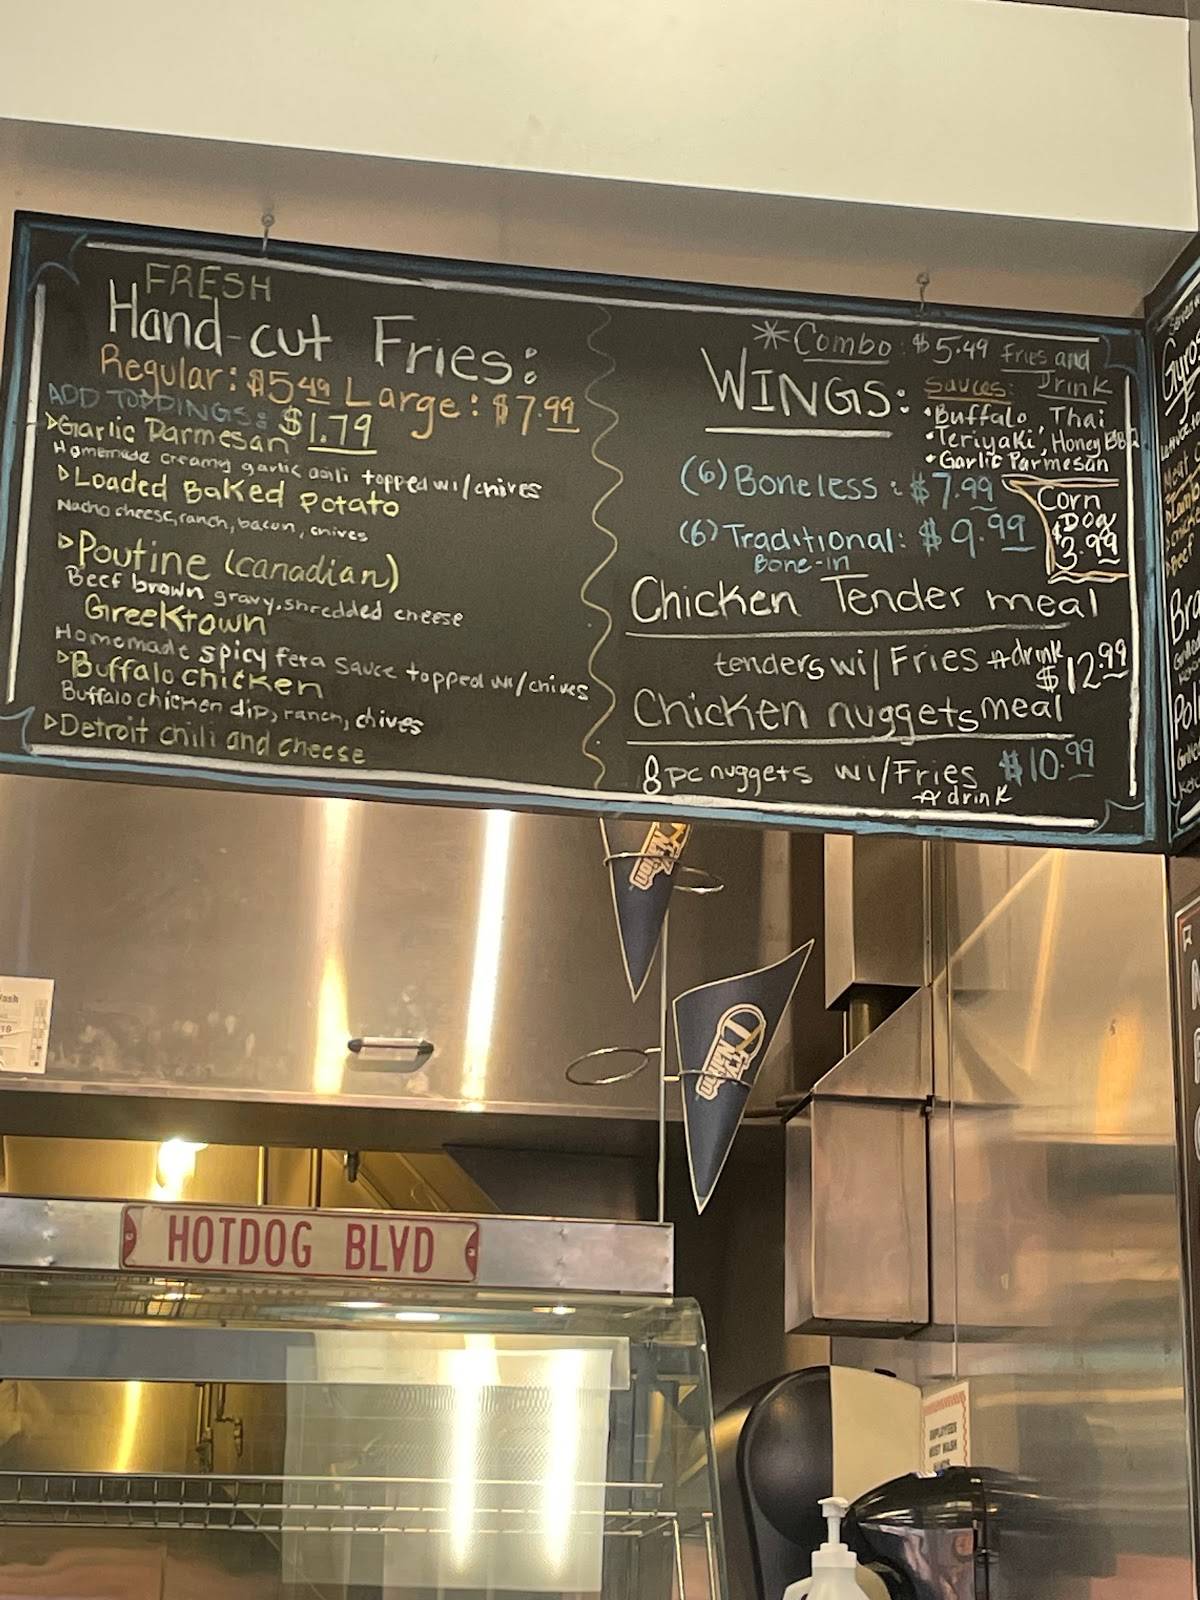 FRESH
Hand-cut Fries:
Regular: $5.49 Large: $7.99
ADD TOPPINGS: $1.79
▹Garlic Parmesan
Homemade creamy garlic aoili topped w/chives
▹Loaded Baked Potato
Nacho cheese, ranch, bacon, chives
▹Poutine (canadian)
Beef brown gravy, shredded cheese
Greektown
Homemade spicy feta sauce topped w/chives
▹Buffalo chicken
Buffalo chicken dip, ranch, chives
▹Detroit chili and cheese
*Combo: $5.49 Fries and Drink
WINGS:
Sauces:
•Buffalo, Thai
•Teriyaki, Honey BBQ
•Garlic Parmesan
(6) Boneless: $7.99
(6) Traditional: $9.99
Bone-in
Corn
Dog
$3.99
Chicken Tender meal
tenders w/ Fries & drink
$12.99
Chicken nuggets meal
8pc nuggets w/Fries $10.99
& drink
Gyros
Meat
Lamb
Beef
HOTDOG BLVD
EMPLOYEES
MUST WASH
HANDS